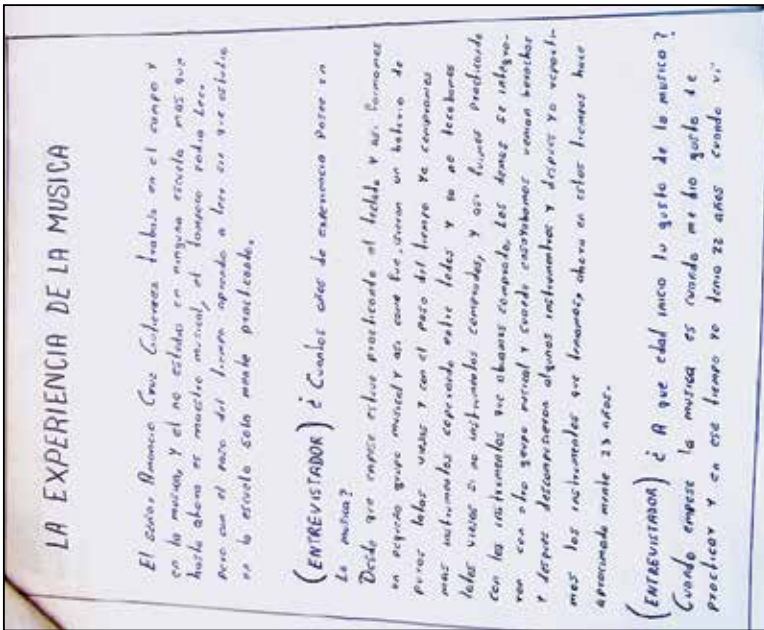 LA EXPERIENCIA DE LA MUSICA
El señor Amancio Cruz Gutierrez trabaja en el campo y
en la musica, y el no estidio en ninguna escuela mas que
hasta ahora es maestro musical, el tampoco podia leer
pero con el paso del tiempo aprendio a leer sin que estudia
en la escuela solo mente practicando.
(ENTREVISTADOR) ¿ Cuantos años de experiencia posee en
la musica?
Desde que empese estuve practicando el teclado y asi formamos
un pequeño grupo musical y asi como fue, un bateria de
puros latas viejas y con el paso del tiempo ya compramos
mas instrumentos entre todos y ya no tocabamos
latas viejas si no instrumentos comprados, y asi fuimos practicando
con los instrumentos que abiamos comprado, los demas se integra-
ron con otro grupo musical y cuando ensayabamos venian borrachos
y despues descompusieron algunos instrumentos y despues yo
mos los instrumentos que teniamos, ahora en estos tiempos hace
aproximada mente 23 años.
(ENTREVISTADOR) ¿ A que edad inicio tu gusto de la musica?
Cuando empese la musica es cuando me dio gusto de
practicar y en ese tiempo yo tenia 22 años cuando vi